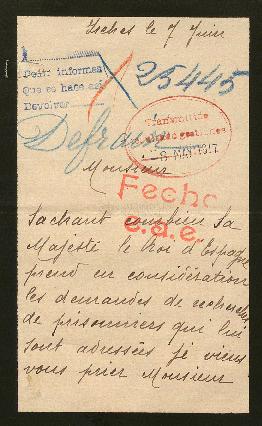 Isches le 7 Juin
Dense informes
Que se hace así
Devolver
25445
Transmitido
8 MAY.1917
Defraire
Monsieur
Fecho
e.a.e.
Sachant combien Sa
Majesté le Roi d'Espagne
prend en considération
les demandes de recherches
de prisonniers qui lui
sont adressées je viens
vous prier Monsieur